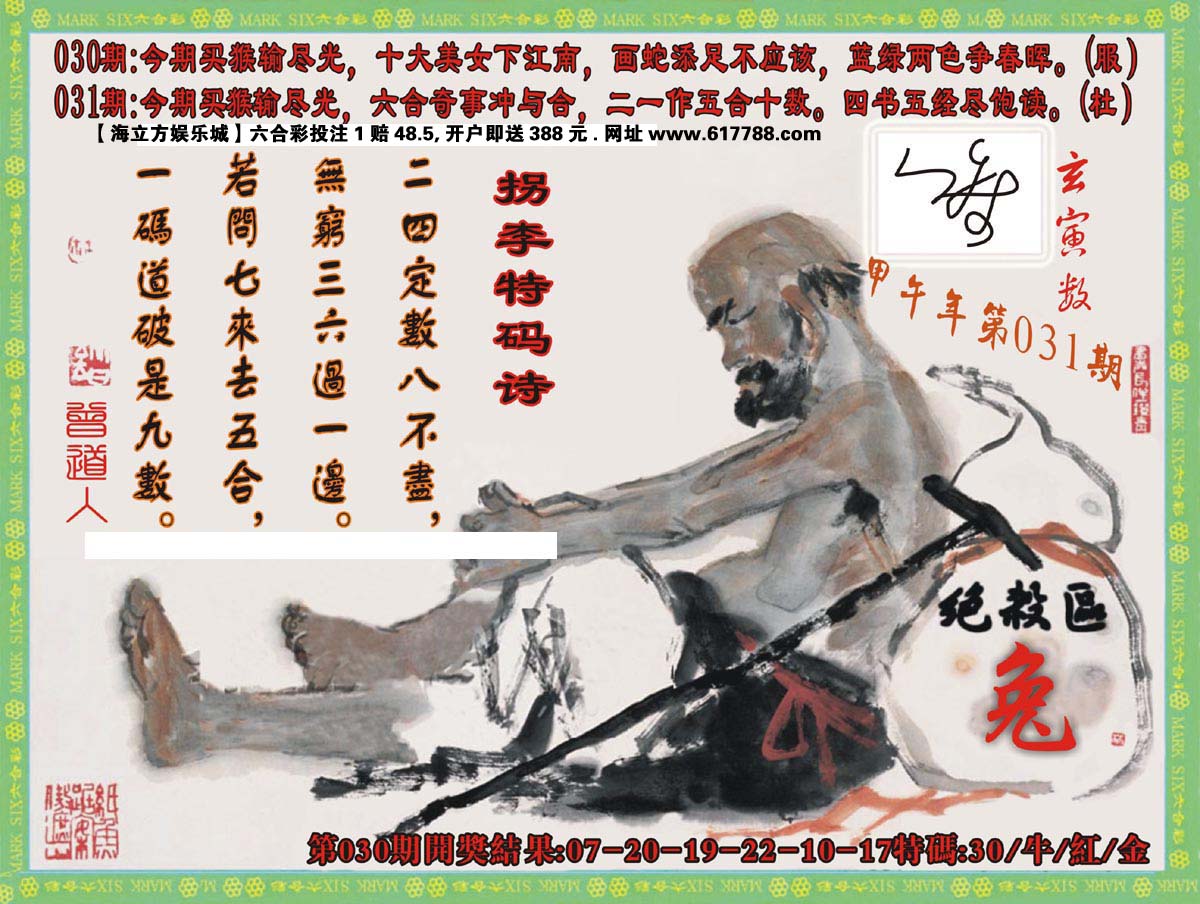 MARK SIX六合彩 MARK SIX六合彩 MARK SIX六合彩 MARK SIX六合彩 MARK SIX六合彩 MARK SIX六合彩
030期:今期买猴输尽光，十大美女下江南，画蛇添足不应该，蓝绿两色争春晖。(服)
031期:今期买猴输尽光，六合奇事冲与合，二一作五合十数。四书五经尽饱读。(杜)
【海立方娱乐城】六合彩投注1赔48.5,开户即送388元.网址www.617788.com
玄寅数
甲午年第031期
拐李特码诗
二四定數八不盡，
無窮三六過一邊。
若問七來去五合，
一碼道破是九數。
曾道人
绝殺區
兔
第030期開獎結果:07-20-19-22-10-17特碼:30/牛/紅/金